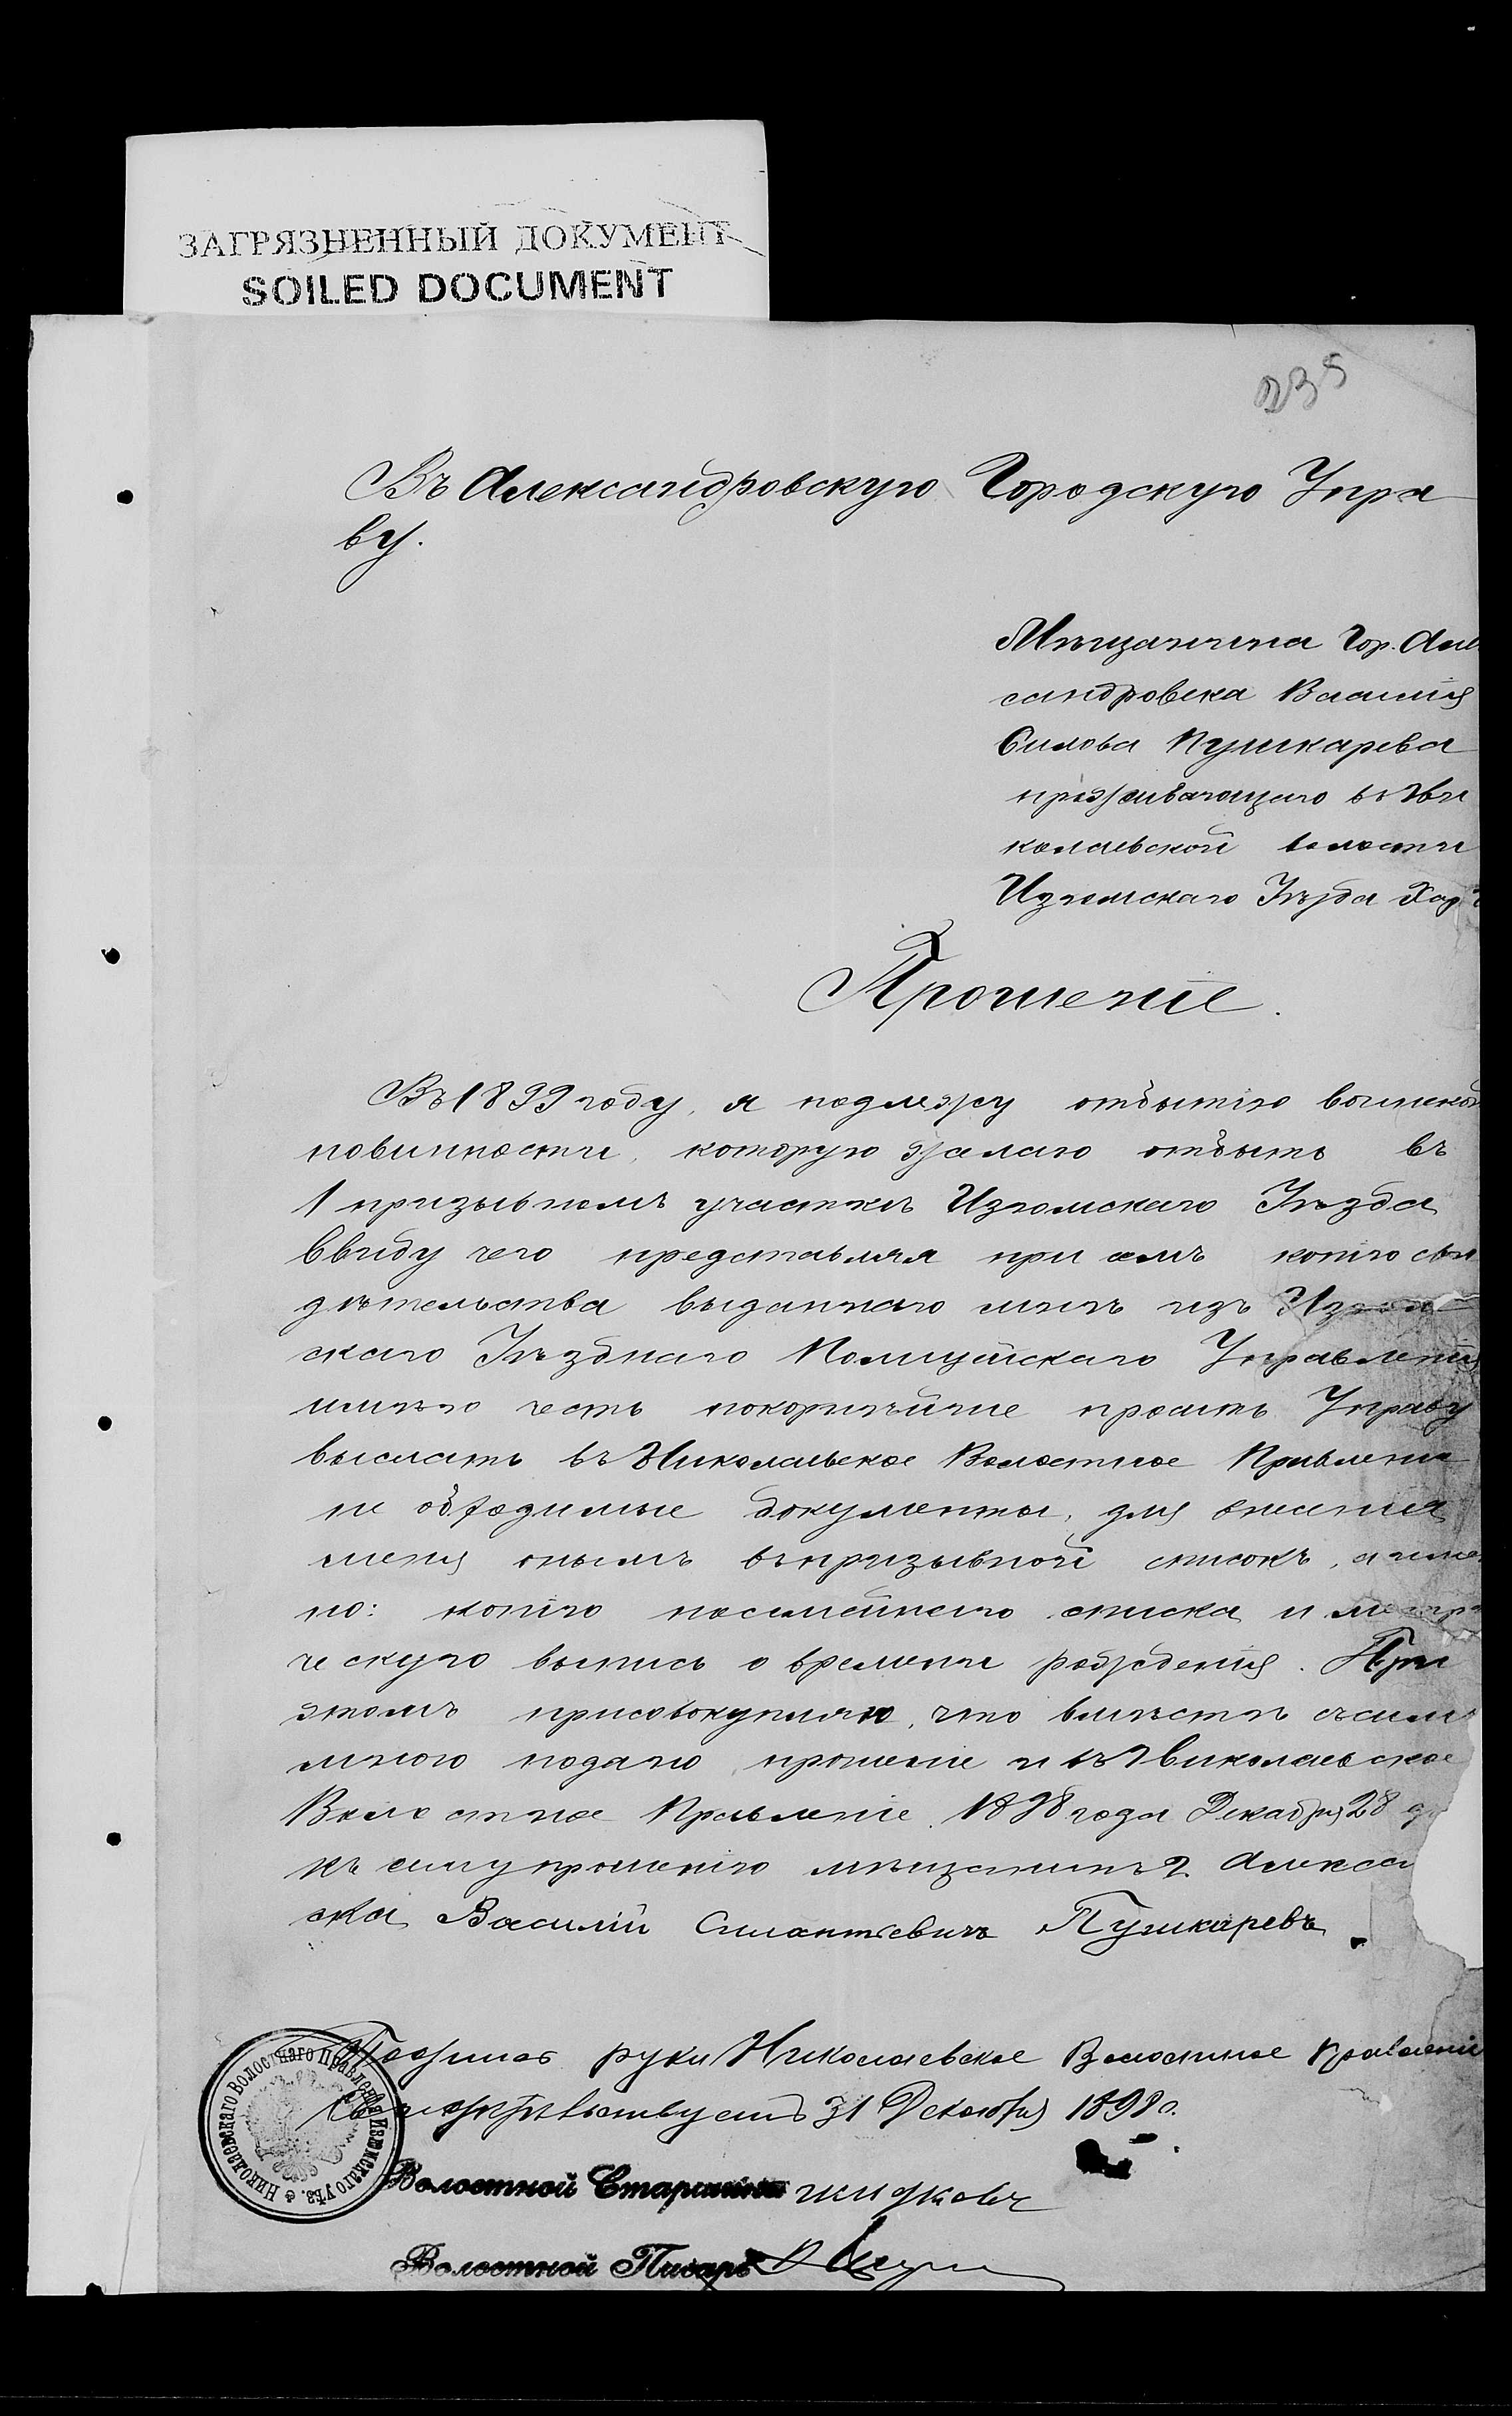 ЗАГРЯЗНЕННЫЙ ДОКУМЕНТ
SOILED DOCUMENT
235
Въ Александровскую Городскую Упра
ву.
Мѣщанина Гор. Алек
сандровска Василія
Силова Пушкарева
проживающаго въ Ни
колаевской волости
Изюмскаго Уѣзда Хар. г
Прошеніе.
Въ 1899 году, я подлежу отбытію воинской
повинности, которую желаю отбыть въ
1 призывномъ участкѣ Изюмскаго Уѣзда
ввиду чего представляя при семъ копію сви
дѣтельства выданнаго мнѣ изъ Изюм
скаго Уѣзднаго Полицейскаго Управленія
имѣю честь покорнѣйше просить Управу
выслать въ Николаевское Волостное Правленіе
не обходимые документы, для внесенія
меня онымъ въ призывной списокъ, а имен
но: копію посемейнаго списка и метри
ческую выпись о времени рожденія. При
этомъ присовокупляю, что вмѣстѣ съ симъ
мною подано прошеніе и въ Николаевское
Волостное Правленіе. 1898 года Декабря 28 д
къ сему прошенію мѣщанинъ г. Алексан
ска Василій Силантіевичъ Пушкаревъ
руки Николаевское Волостное Правленіе
31 Декабря 1898 г.
Волостной Старшина Жидковъ
Волостной Писарь
Николаевскаго Волостнаго Правленія Изюмскаго Уѣз.